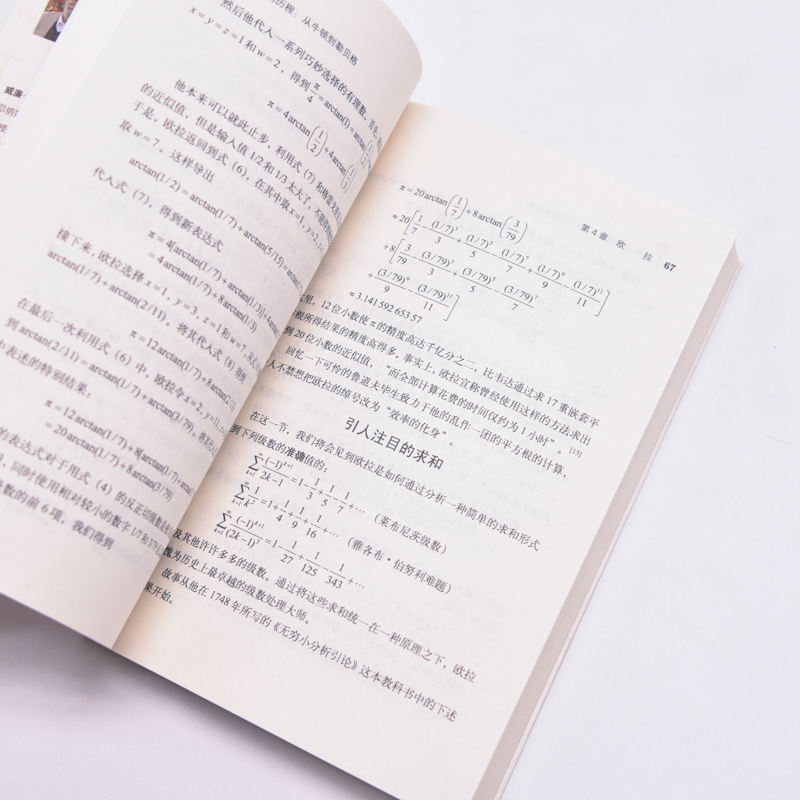 威廉·
历程：从牛顿到勒贝格
然后他代入一系列巧妙选择的有理数。首先，
x = y = z = 1 和 w = 2，得到 π/4 = arctan(1) = arctan(
π = 4 arctan(1/2) + 4 arctan(1/3)
他本来可以就此止步，利用式（7）和格雷戈里
的近似值，但是输入值 1/2 和 1/3 太大了，不能
于是，欧拉返回到式（6），在其中取 x = 1，y = 2，z
取 w = 7，这样导出
arctan(1/2) = arctan(1/7) + arctan(5/15) = arctan(
代入式（7），得到新表达式
π = 4[arctan(1/7) + arctan(1/3)] + 4 arctan
= 4 arctan(1/7) + 8 arctan(1/3)
接下来，欧拉选择 x = 1，y = 3，z = 1 和 w = 7，
arctan(1/7) + arctan(2/11)。将其代入式（8）得到
π = 12 arctan(1/7) + 8 arctan(2/11)
在最后一次利用式（6）中，欧拉令 x = 2，y = 11，
到 arctan(2/11) = arctan(1/7) + arctan(3/79)。
中表述的特别结果：
π = 12 arctan(1/7) + 8[arctan(1/7) + arctan
= 20 arctan(1/7) + 8 arctan(3/79)
的表达式对于用式（4）的反正切级数
，同时使用相对较小的数字 1/7 和 3/79
级数的前 6 项，我们得到
第 4 章 欧 拉 67
π = 20 arctan(1/7) + 8 arctan(3/79)
≈ 20[1/7 − (1/7)³/3 + (1/7)⁵/5 − (1/7)⁷/7 + (1/7)⁹/9 − (1/7)¹¹/11]
+ 8[3/79 − (3/79)³/3 + (3/79)⁵/5 − (3/79)⁷/7
+ (3/79)⁹/9 − (3/79)¹¹/11]
≈ 3.141 592 653 57
里，12 位小数使 π 的精度高达千亿分之二，比韦达通过求 17 重嵌套平
根所得结果的精度高得多。事实上，欧拉宣称曾经使用这样的方法求出
到 20 位小数的近似值，“而全部计算花费的时间仅约为 1 小时”。[13]
回忆一下可怜的鲁道夫毕生致力于他的乱作一团的平方根的计算，
人不禁想把欧拉的绰号改为“效率的化身”。
引人注目的求和
在这一节，我们将会见到欧拉是如何通过分析一种简单的求和形式
到下列级数的准确值的：
∑_{k=1}^{∞} (−1)^{k+1}/(2k−1) = 1 − 1/3 + 1/5 − 1/7 + ⋯（莱布尼茨级数）
∑_{k=1}^{∞} 1/k² = 1 + 1/4 + 1/9 + 1/16 + ⋯（雅各布·伯努利难题）
∑_{k=1}^{∞} (−1)^{k+1}/(2k−1)³ = 1 − 1/27 + 1/125 − 1/343 + ⋯
及其他许许多多的级数。通过将这些求和统一在一种原理之下，欧拉
愧为历史上最卓越的级数处理大师。
故事从他在 1748 年所写的《无穷小分析引论》这本教科书中的下述
果开始。